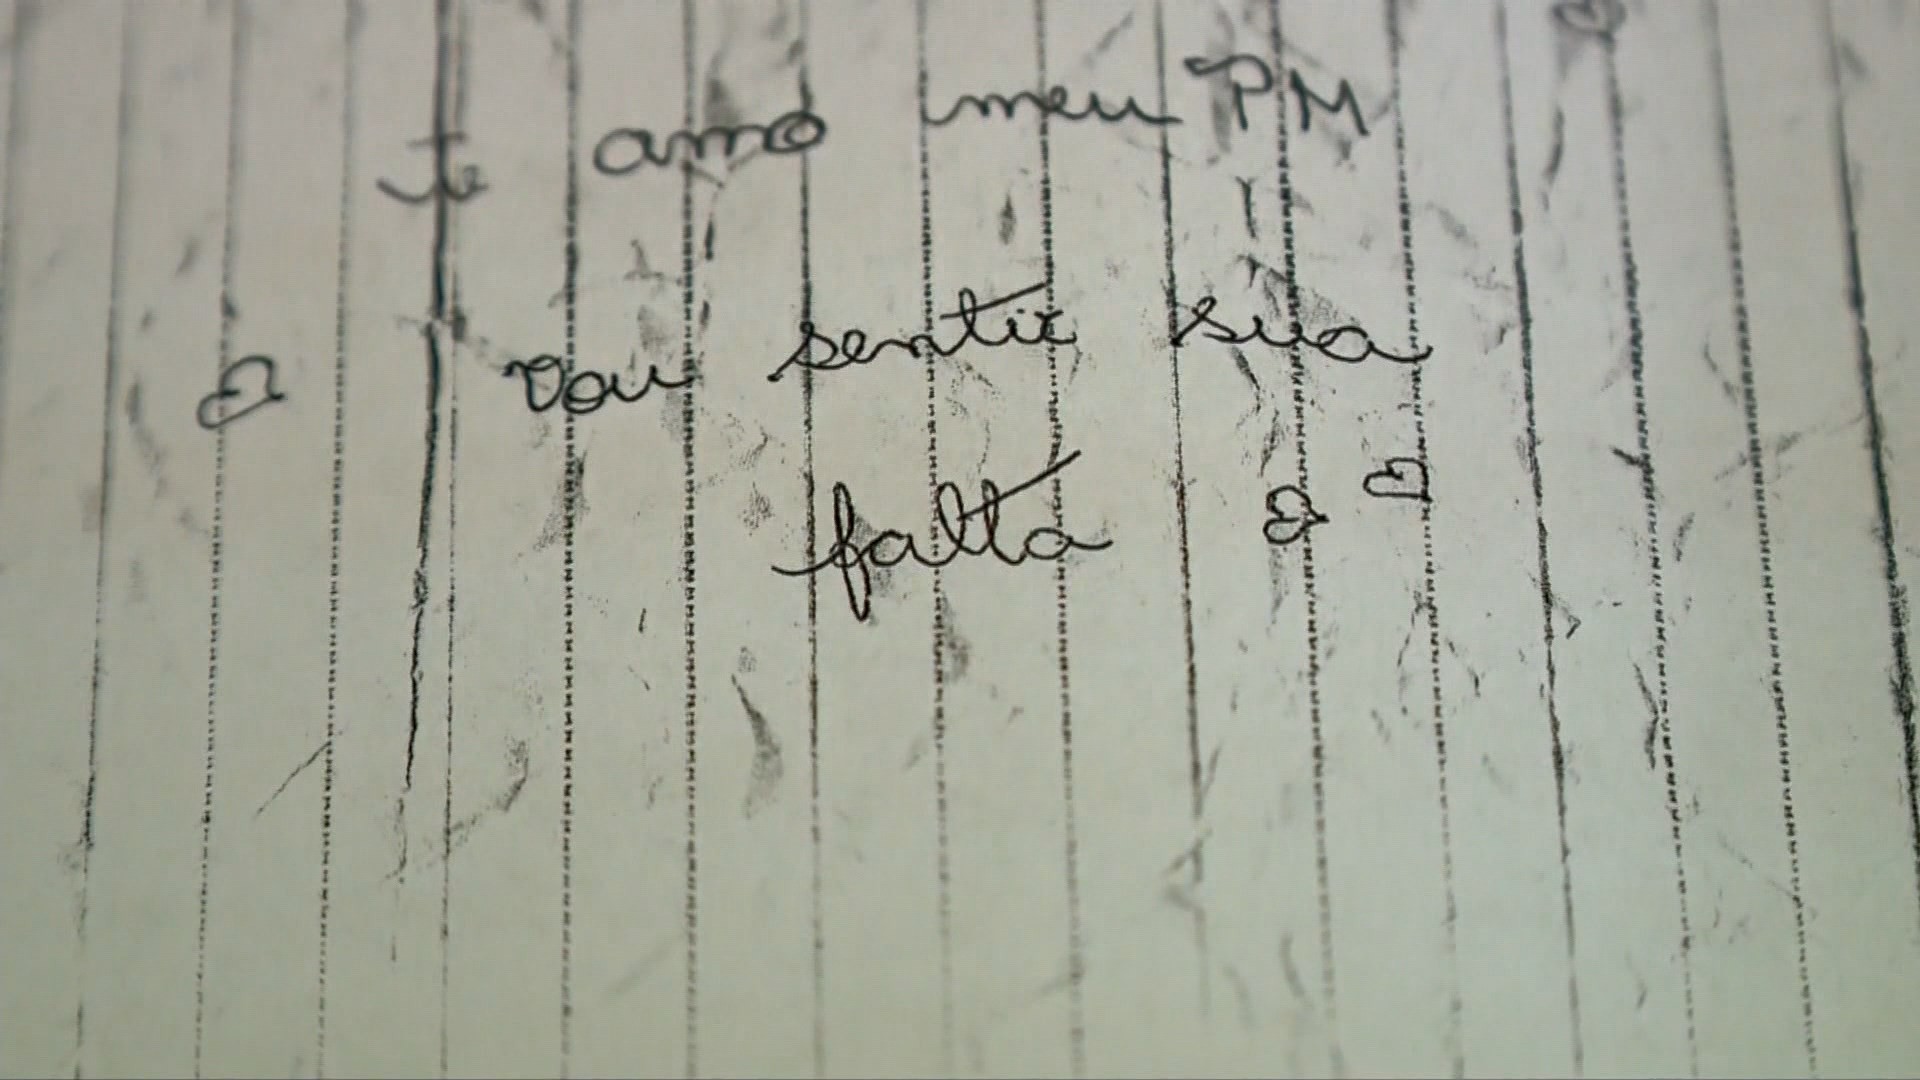 te amo meu PM
vou sentir sua
falta